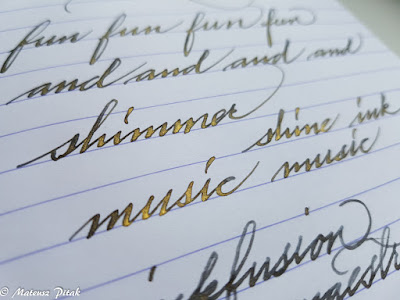 fun fun fun fun
and and and and
shimmer
shine ink
music music
inkfusion
maestr
© Mateusz Pitak